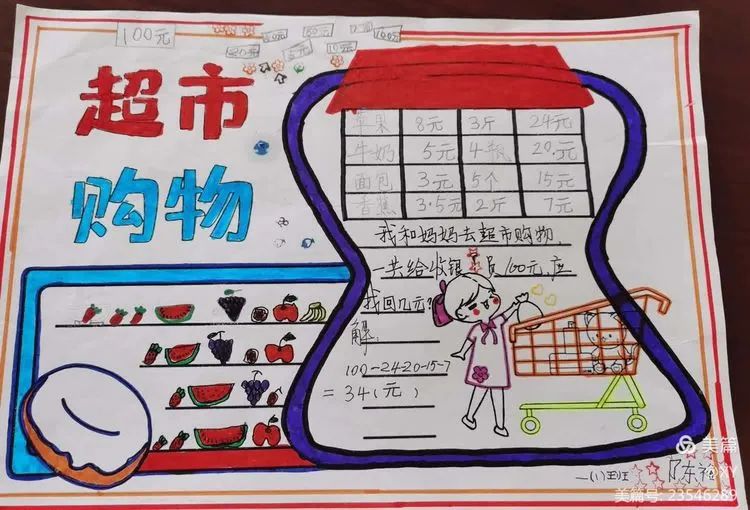 100元
超市
购物
苹果 8元 3斤 24元
牛奶 5元 4瓶 20元
面包 3元 5个 15元
香蕉 3.5元 2斤 7元
我和妈妈去超市购物,
一共给收银员100元,应
找回几元?
解:
100-24-20-15-7
=34(元)
一(1)班
美篇
美篇号: 23546289